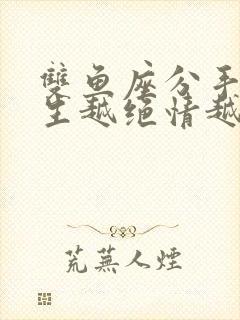 雙鱼座分手
生越绝情越
荒蕪人煙